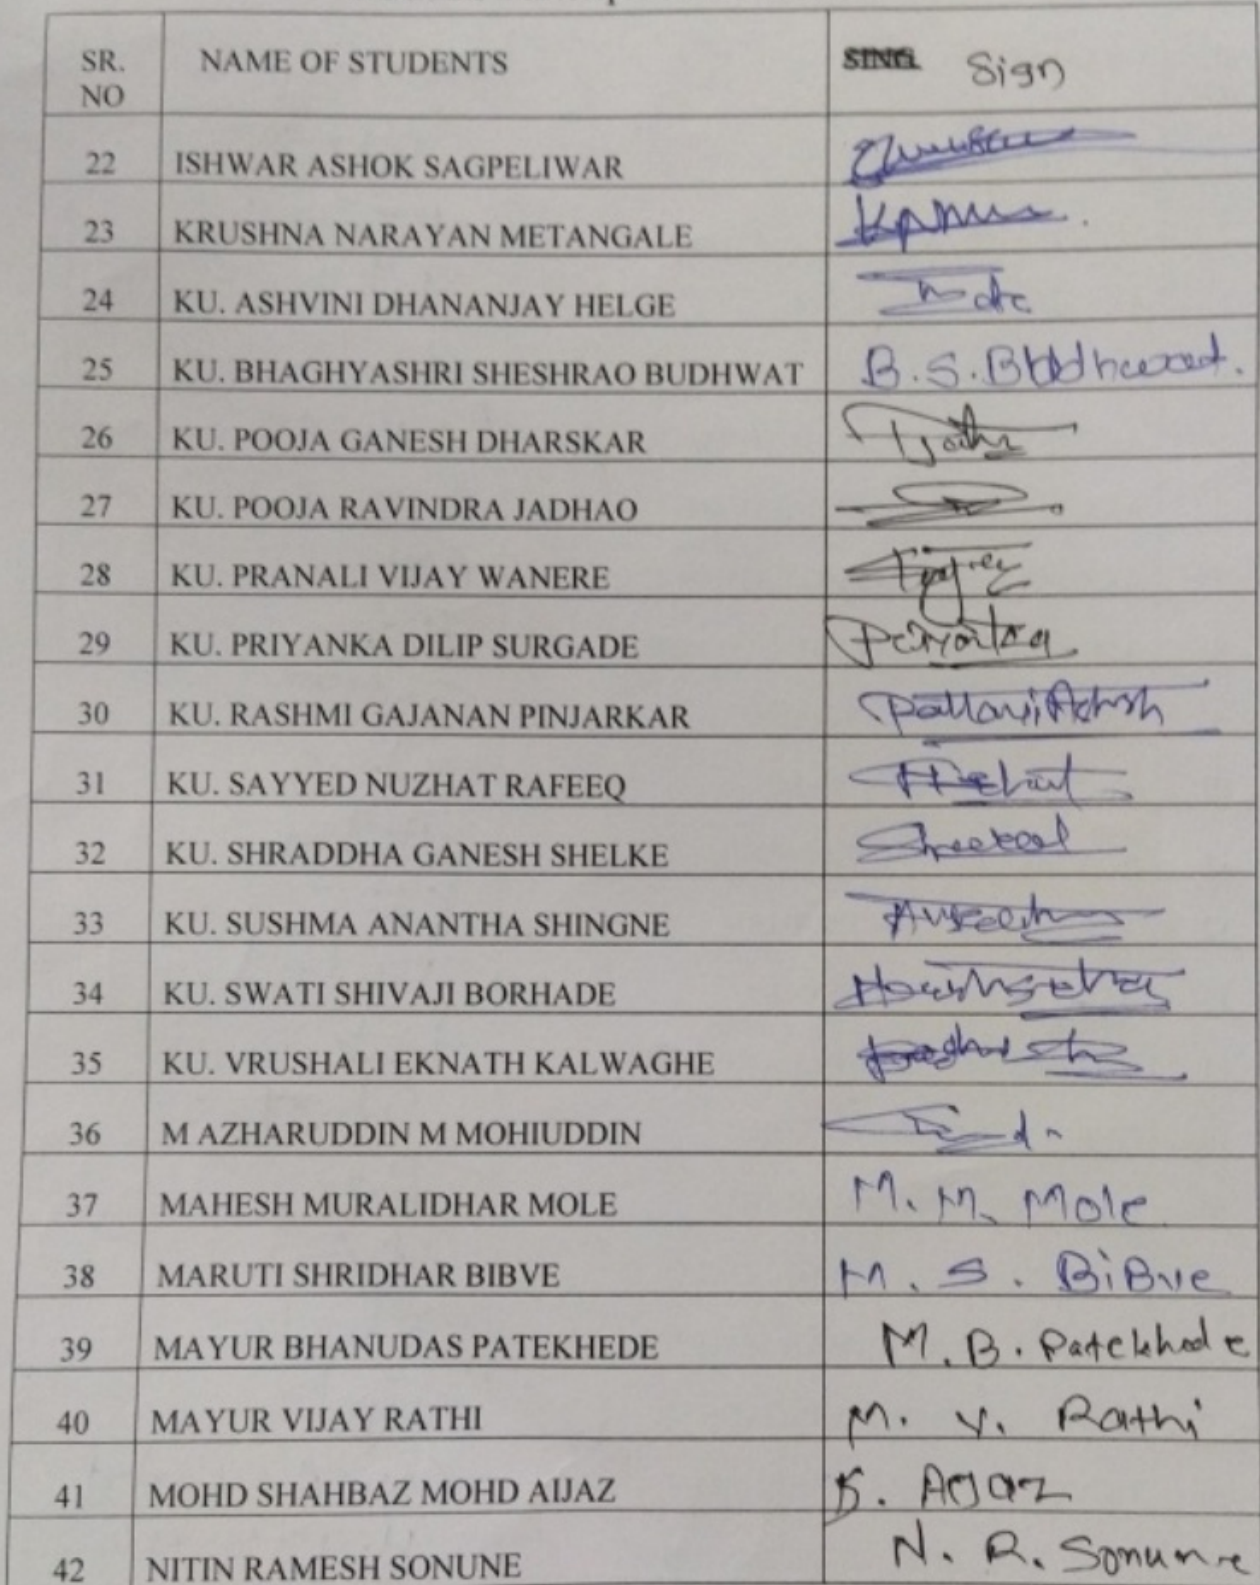 SR. NO NAME OF STUDENTS SING Sign
22 ISHWAR ASHOK SAGPELIWAR
23 KRUSHNA NARAYAN METANGALE
24 KU. ASHVINI DHANANJAY HELGE
25 KU. BHAGHYASHRI SHESHRAO BUDHWAT B.S.Budhwat.
26 KU. POOJA GANESH DHARSKAR
27 KU. POOJA RAVINDRA JADHAO
28 KU. PRANALI VIJAY WANERE
29 KU. PRIYANKA DILIP SURGADE
30 KU. RASHMI GAJANAN PINJARKAR
31 KU. SAYYED NUZHAT RAFEEQ
32 KU. SHRADDHA GANESH SHELKE
33 KU. SUSHMA ANANTHA SHINGNE
34 KU. SWATI SHIVAJI BORHADE
35 KU. VRUSHALI EKNATH KALWAGHE
36 M AZHARUDDIN M MOHIUDDIN
37 MAHESH MURALIDHAR MOLE M. M. Mole
38 MARUTI SHRIDHAR BIBVE M. S. BiBve
39 MAYUR BHANUDAS PATEKHEDE M.B. Patekhede
40 MAYUR VIJAY RATHI M. V. Rathi
41 MOHD SHAHBAZ MOHD AIJAZ
42 NITIN RAMESH SONUNE N. R. Sonune